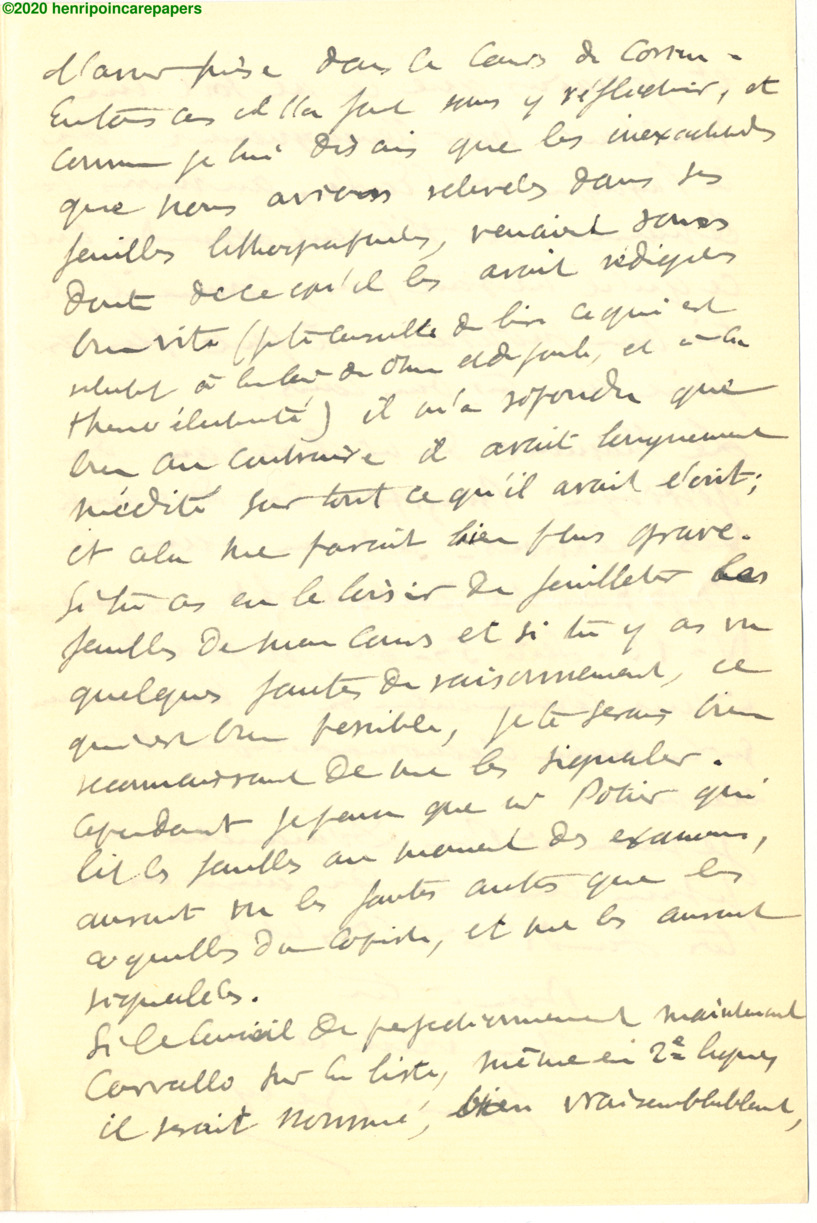 ©2020 henripoincarepapers
l'avoir prise dans le Cours de Cornu.
En tous cas il l'a fait sans y réfléchir, et
comme je lui disais que les inexactitudes
que nous avions relevées dans ses
feuilles lithographiées, venaient sans
doute de ce qu'il les avait rédigées
bien vite (je te conseille de lire ce qui est
relatif à la loi de Ohm et de Joule, et à la
thermo électricité) il m'a répondu que
bien au contraire il avait longuement
médité sur tout ce qu'il avait écrit;
et cela me parait bien plus grave.
Si tu as eu le loisir de feuilleter les
feuilles de mon cours et si tu y as vu
quelques fautes de raisonnement, ce
qui est bien possible, je te serais bien
reconnaissant de me les signaler.
Cependant je pense que Mr Potier qui
lit les feuilles au moment des examens,
aurait vu les fautes autres que les
coquilles du copiste, et me les aurait
signalées.
Si le Conseil de perfectionnement maintenait
Carvallo sur la liste, même en 2e ligne,
il serait nommé, bien vraisemblablement,